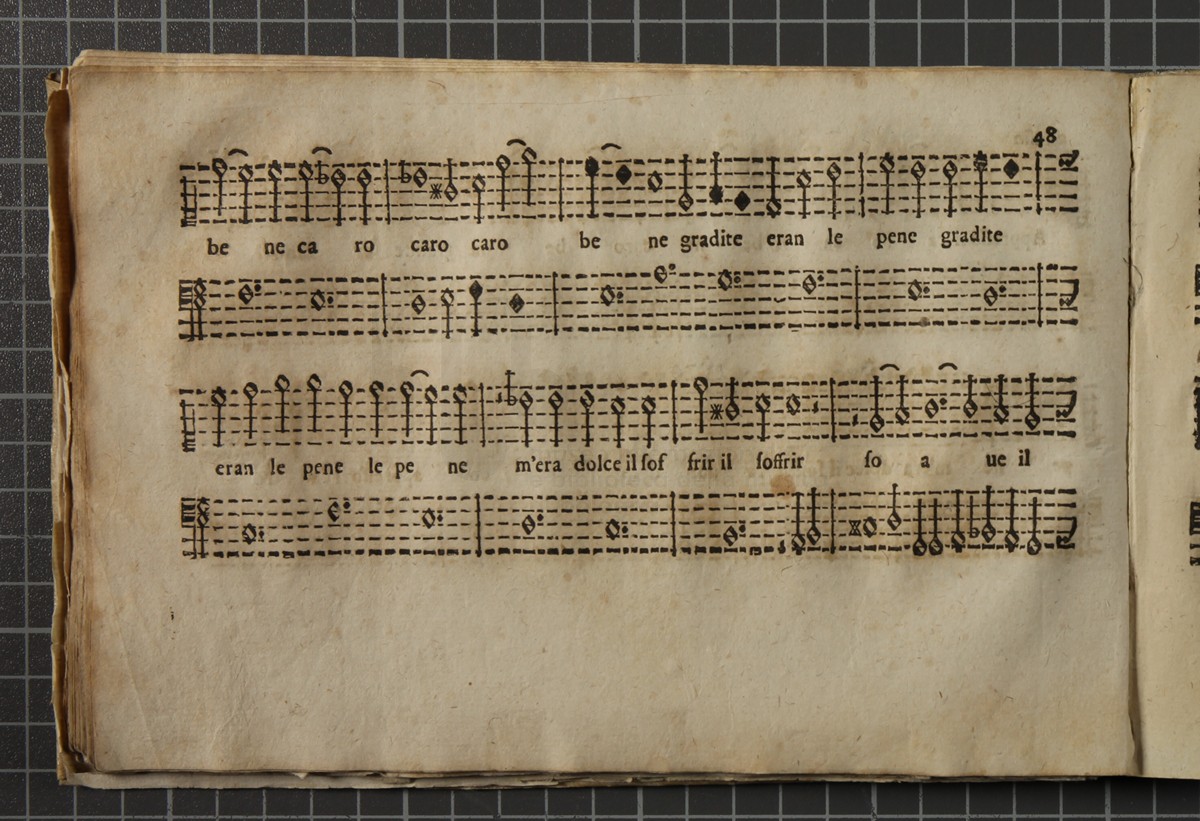 48
be ne ca ro caro caro be ne gradite eran le pene gradite
eran le pene le pe ne m'era dolce il ſof frir il ſoffrir ſo a ue il